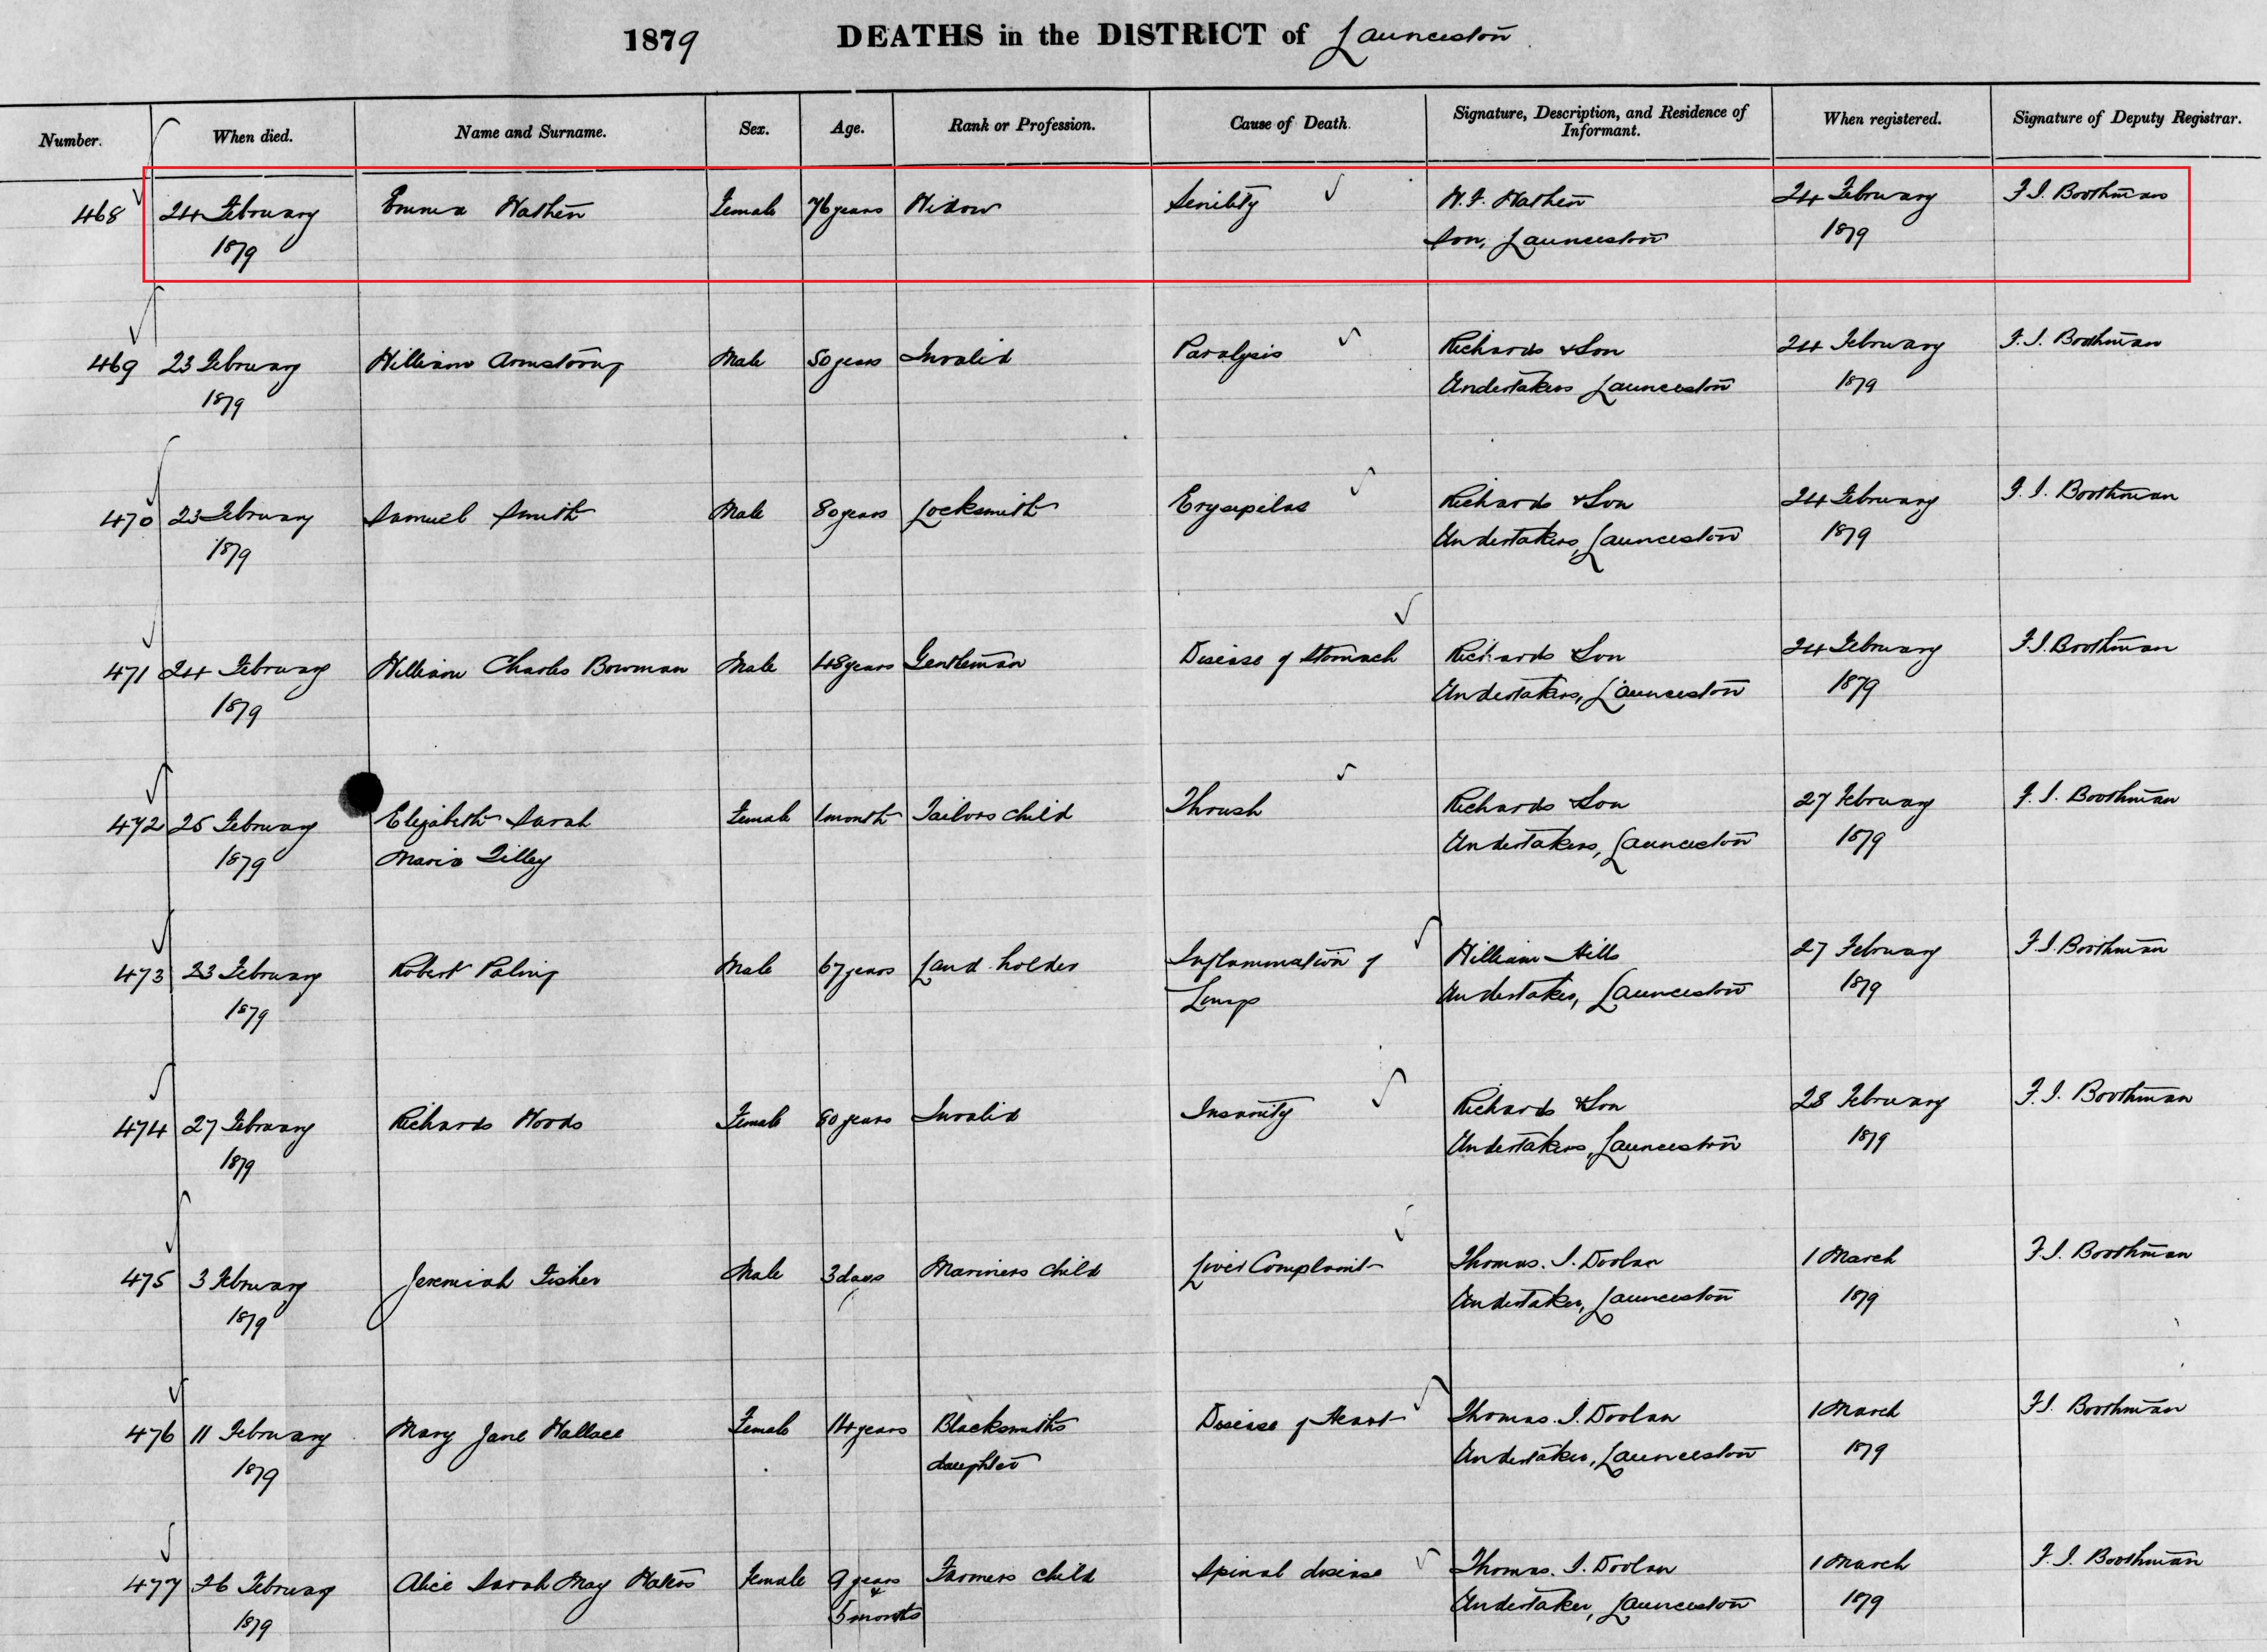 1879 DEATHS in the DISTRICT of Launceston
Number. When died. Name and Surname. Sex. Age. Rank or Profession. Cause of Death. Signature, Description, and Residence of Informant. When registered. Signature of Deputy Registrar.
468 24 February Emma Female 76 years Widow Senility 24 February F. J. Boothman
1879 Son, Launceston 1879
469 23 February William Armstrong Male 50 years Invalid Paralysis Richards & Son 24 February F. J. Boothman
1879 Undertakers Launceston 1879
470 23 February Samuel Smith Male 80 years Locksmith Erysipelas Richards & Son 24 February F. J. Boothman
1879 Undertakers, Launceston 1879
471 24 February William Charles Bowman Male 48 years Gentleman Disease of Stomach Richards & Son 24 February F. J. Boothman
1879 Undertakers, Launceston 1879
472 25 February Elizabeth Sarah Female 1 month Tailors child Thrush Richards & Son 27 February F. J. Boothman
1879 Maria Undertakers, Launceston 1879
473 23 February Robert Paling Male 67 years Land holder Inflammation of William Hills 27 February F. J. Boothman
1879 Lungs Undertaker, Launceston 1879
474 27 February Richards Woods Female 80 years Invalid Insanity Richards & Son 28 February F. J. Boothman
1879 Undertakers, Launceston 1879
475 3 February Jeremiah Fisher Male 3 days Mariners child Liver Complaint Thomas. J. Doolan 1 March F. J. Boothman
1879 Undertaker, Launceston 1879
476 11 February Mary Jane Wallace Female 14 years Blacksmiths Disease of Heart Thomas. J. Doolan 1 March F. J. Boothman
1879 daughter Undertaker, Launceston 1879
477 26 February Alice Sarah May Female 9 years Farmers child Spinal disease Thomas. J. Doolan 1 March F. J. Boothman
1879 & 5 months Undertaker, Launceston 1879